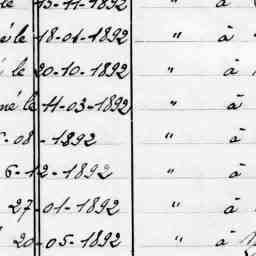 le 15-11-1892 " à
né le 18-01-1892 " à
le 20-10-1892 " à
né le 11-03-1892 " à
-08-1892 " à
6-12-1892 " à
27-01-1892 " à
20-05-1892 " à